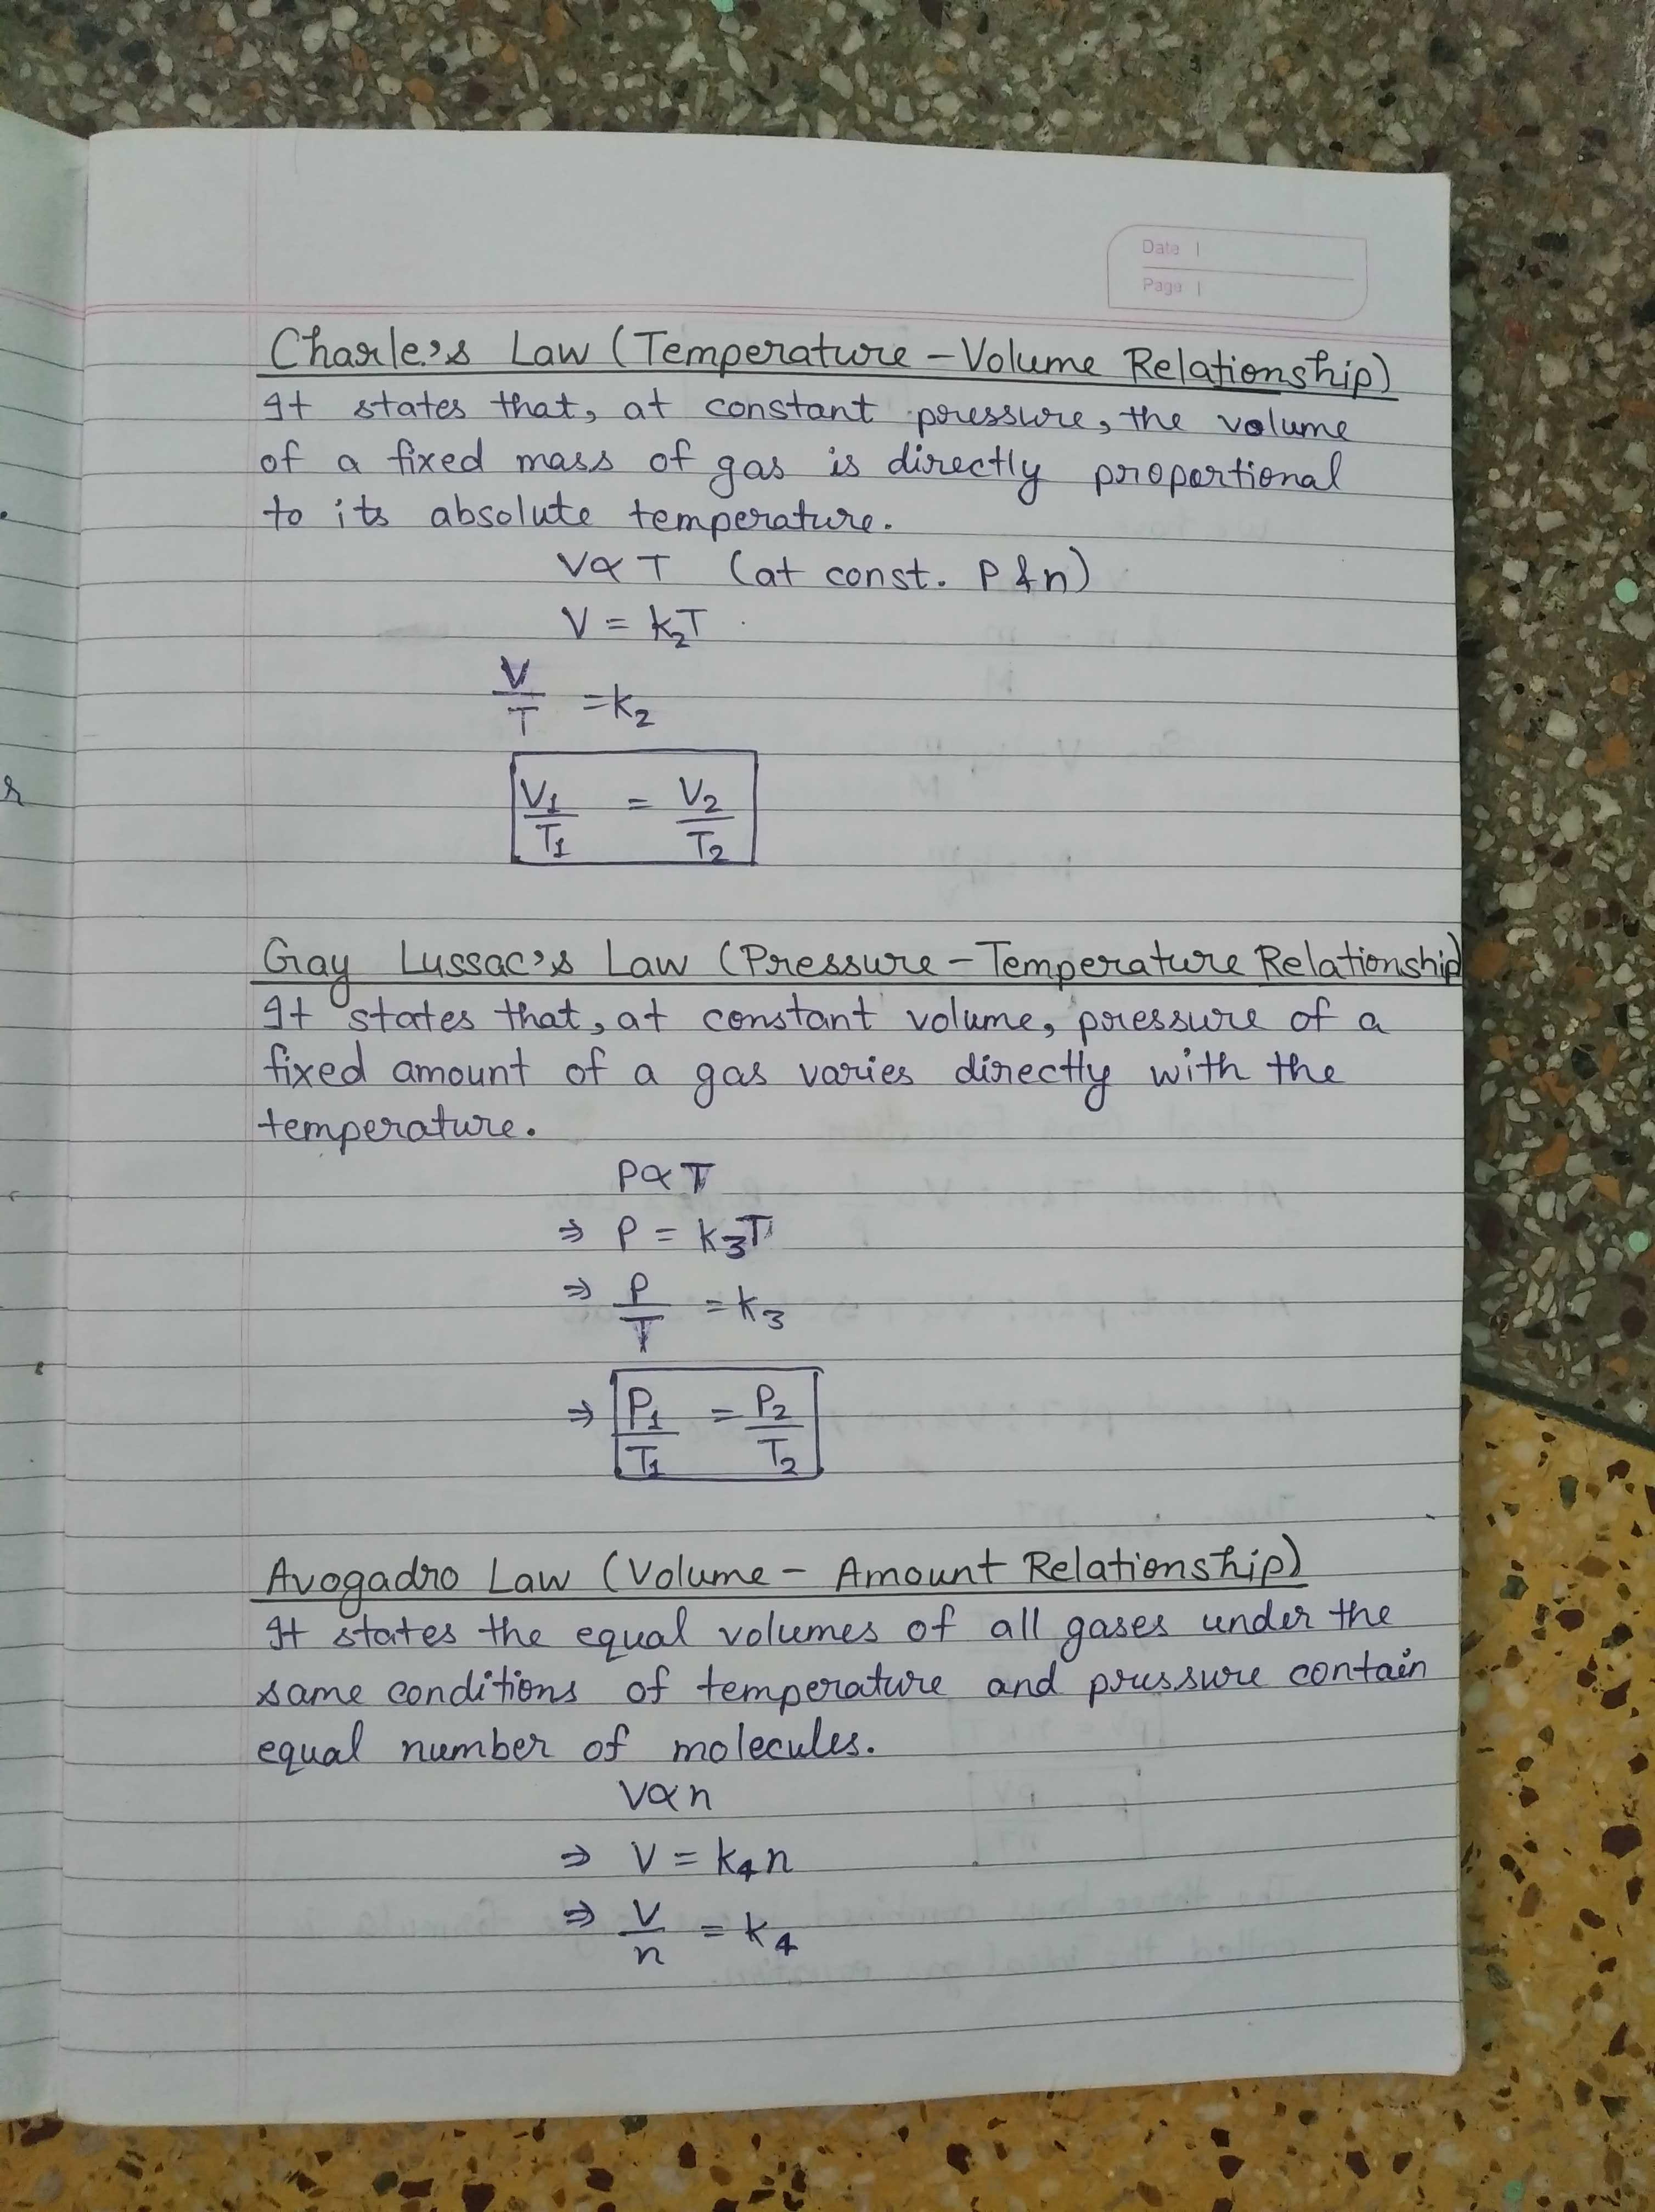 Date
Page
Charle's Law (Temperature - Volume Relationship)
It states that, at constant pressure, the volume
of a fixed mass of gas is directly proportional
to its absolute temperature.
V∝T (at const. P & n)
V = k₂T
V/T = k₂
V₁/T₁ = V₂/T₂
Gay Lussac's Law (Pressure - Temperature Relationship)
It states that, at constant volume, pressure of a
fixed amount of a gas varies directly with the
temperature.
P∝T
⇒ P = k₃T
⇒ P/T = k₃
⇒ P₁/T₁ = P₂/T₂
Avogadro Law (Volume - Amount Relationship)
It states the equal volumes of all gases under the
same conditions of temperature and pressure contain
equal number of molecules.
V∝n
⇒ V = k₄n
⇒ V/n = k₄